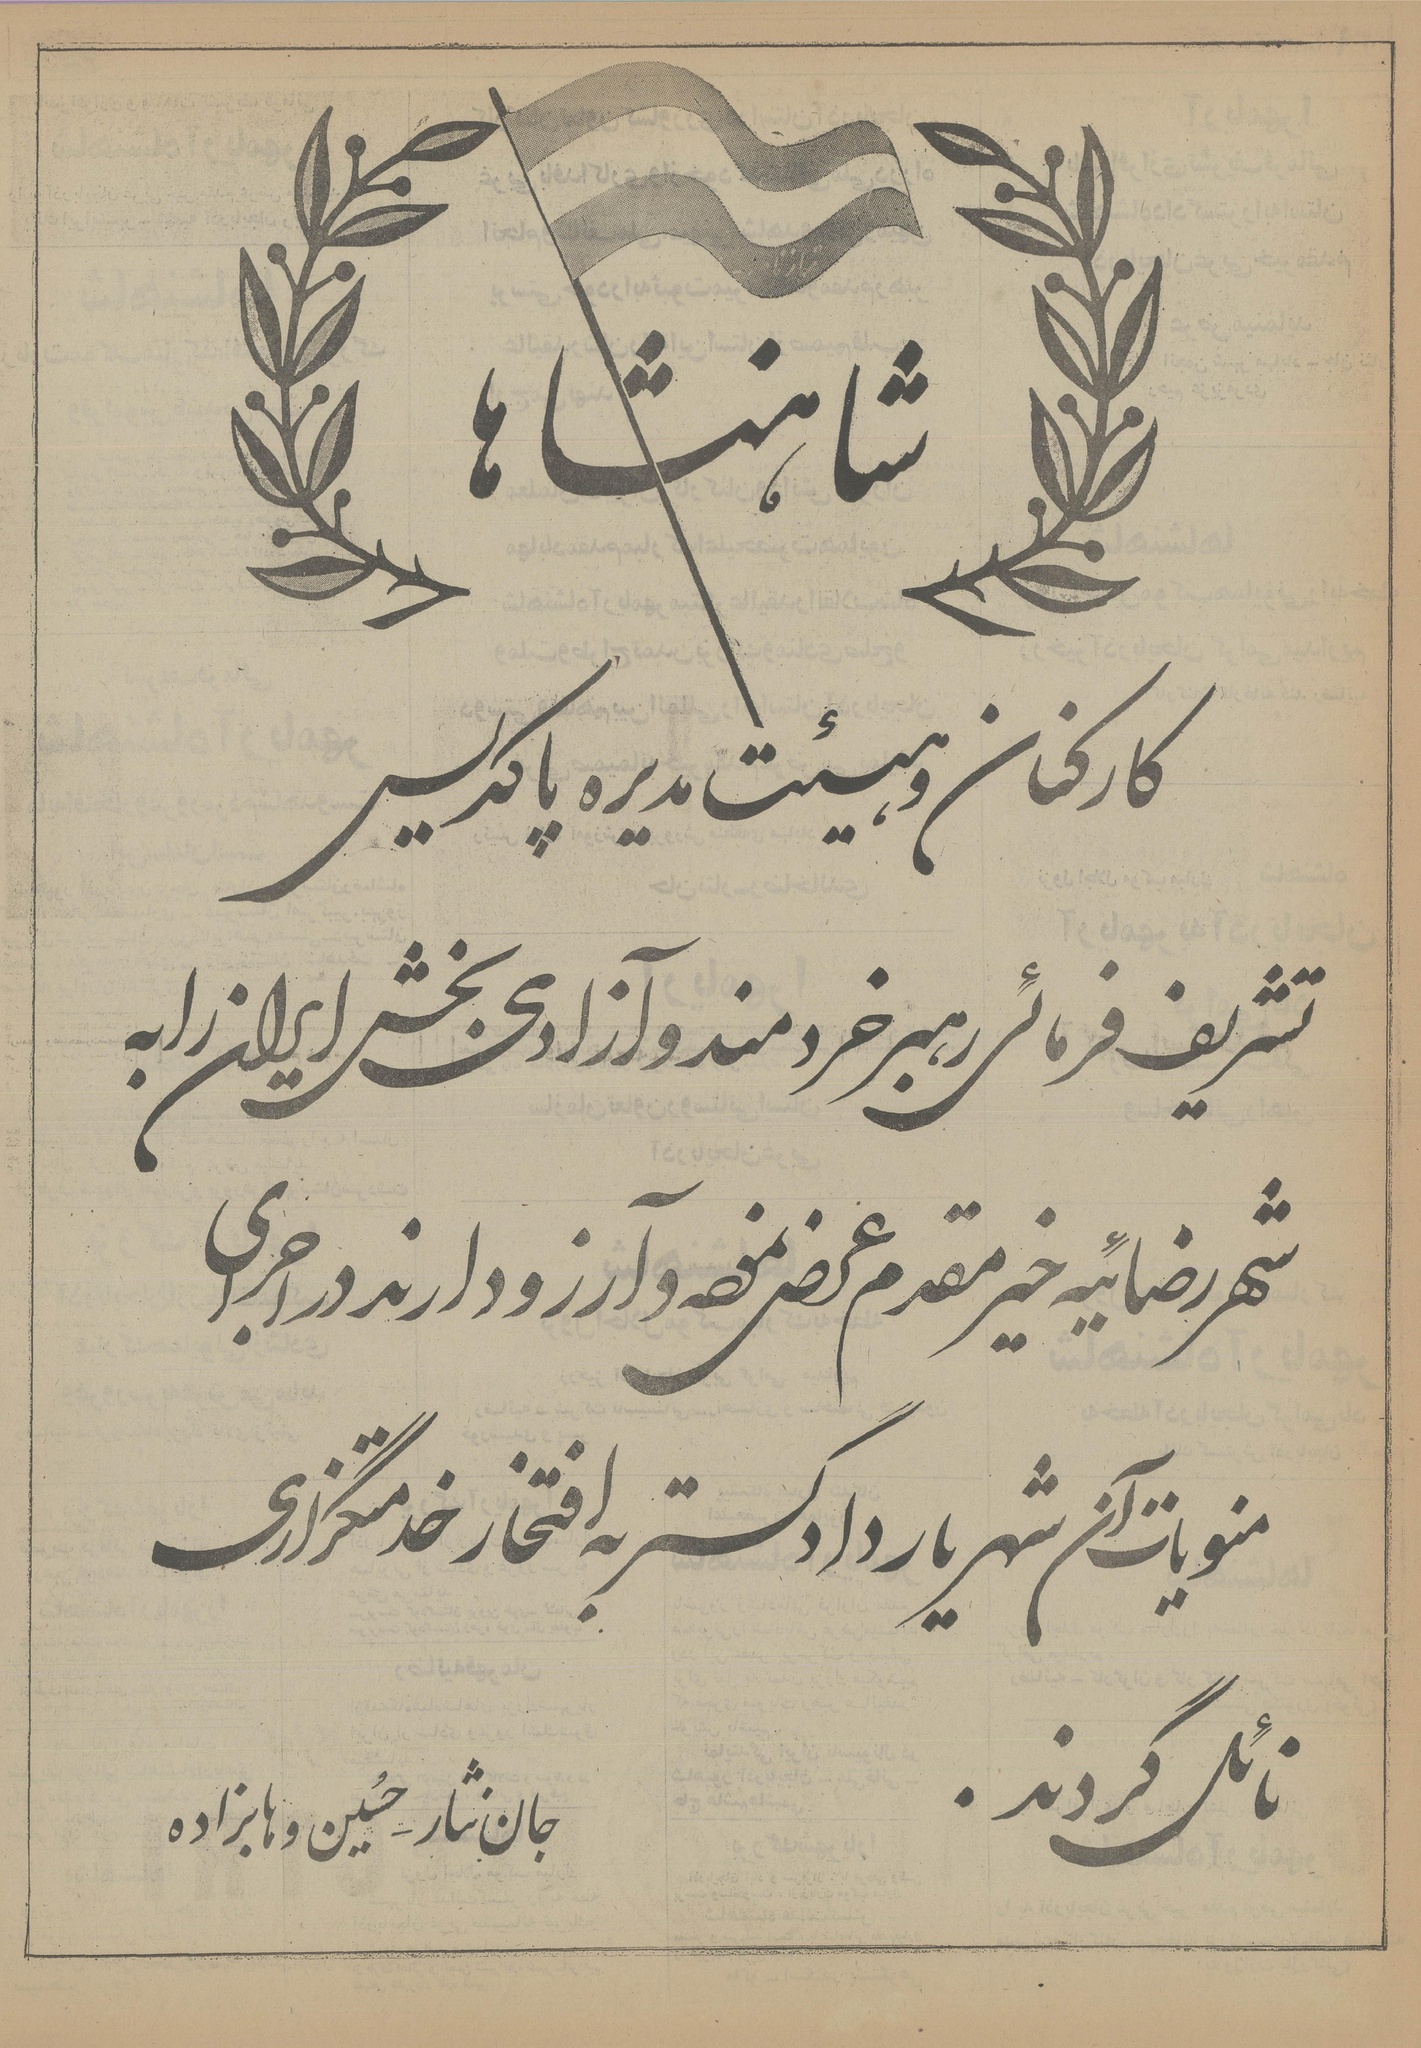 شاهنشاها
کارکنان و هیئت مدیره پاکدیس
تشریف فرمائی رهبر خردمند و آزادی بخش ایران را به
شهر رضائیه خیر مقدم عرض نموده و آرزو دارند در اجرای
منویات آن شهریار دادگستر به افتخار خدمتگزاری
نائل گردند .
جان نثار - حسین وهابزاده